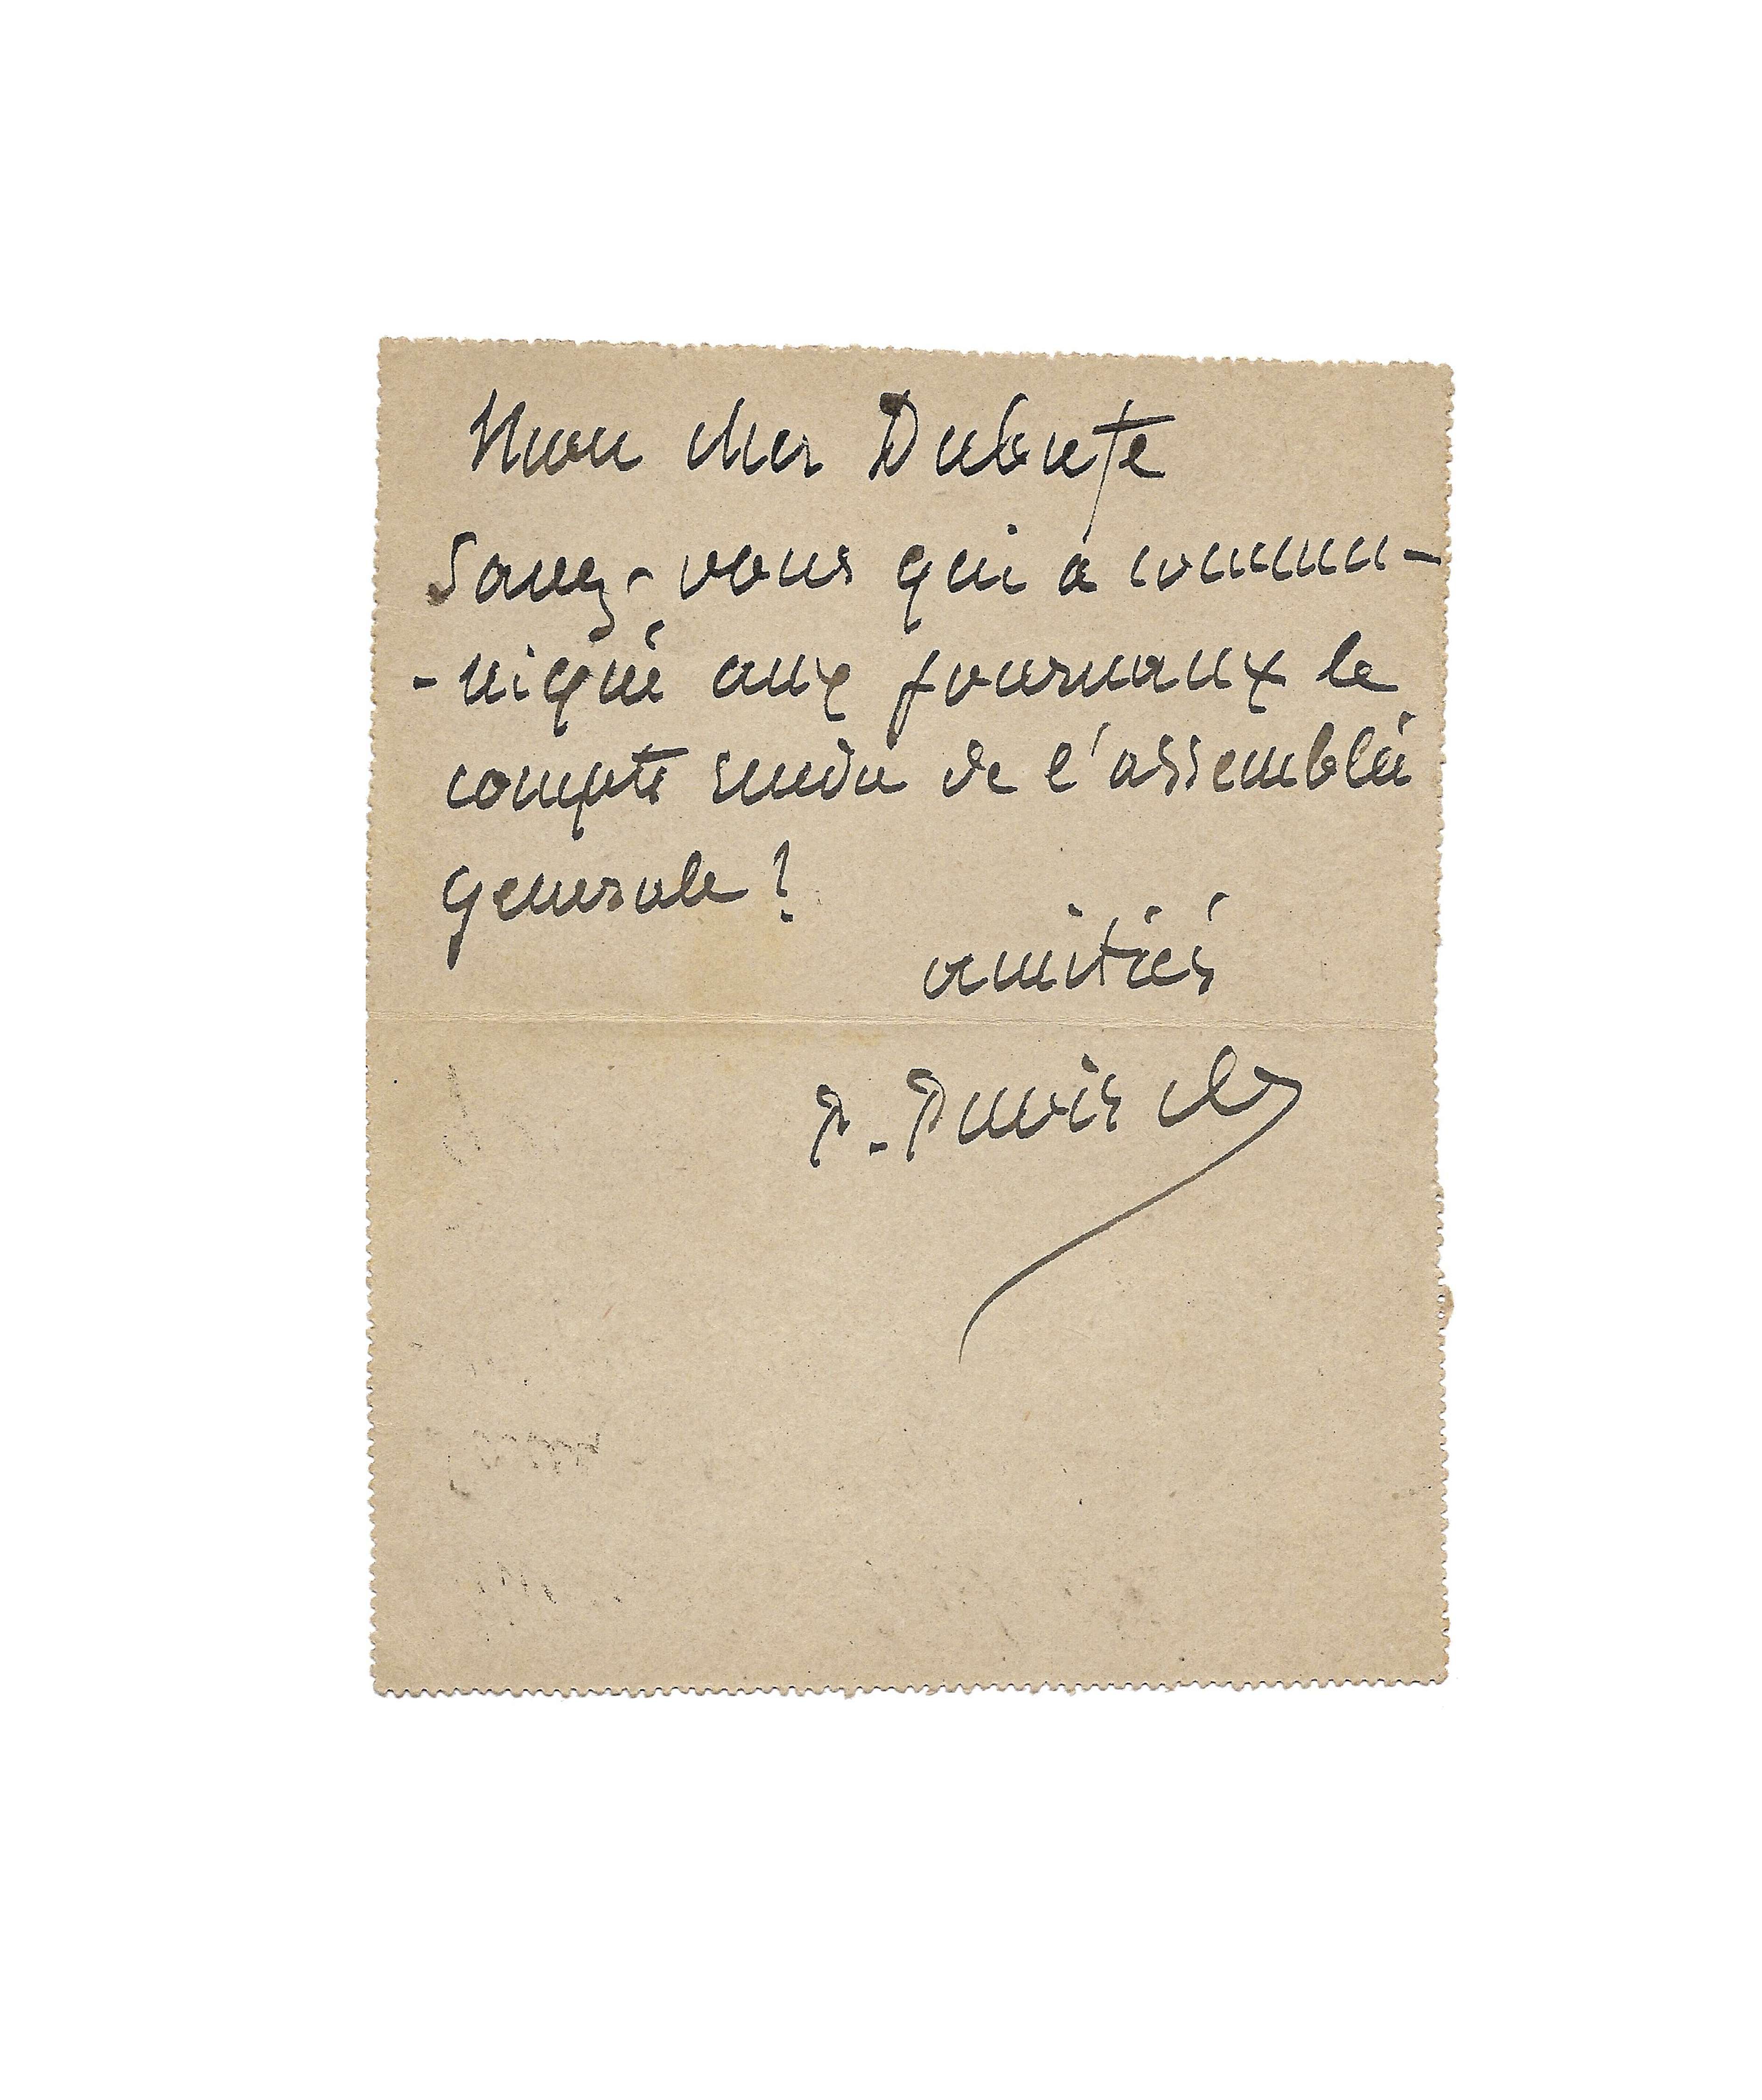 Mon cher Dubufe
Savez-vous qui a commu-
-niqué aux journaux le
compte rendu de l'assemblée
generale ?
amitiés
P. Puvis de Ch